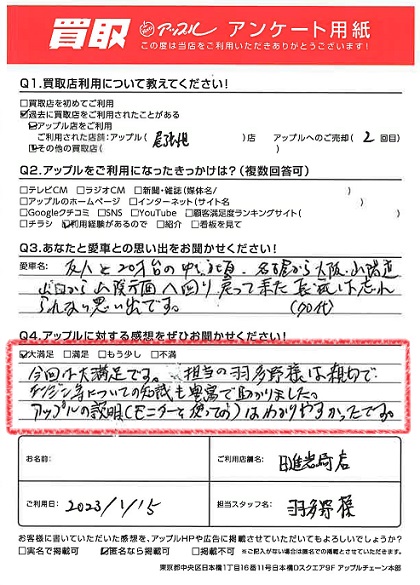 買取 アップル アンケート用紙
この度は当店をご利用いただきありがとうございます!
Q1.買取店利用について教えてください!
□買取店を初めてご利用
☑過去に買取店をご利用されたことがある
☑アップル店をご利用
ご利用された店舗:アップル( 尾張旭 )店 アップルへのご売却( 2 回目)
☑その他の買取店( )
Q2.アップルをご利用になったきっかけは?(複数回答可)
□テレビCM □ラジオCM □新聞・雑誌(媒体名/ )
□アップルのホームページ □インターネット(サイト名 )
□Googleクチコミ □SNS □YouTube □顧客満足度ランキングサイト( )
□チラシ ☑利用経験があるので □紹介 □看板を見て
Q3.あなたと愛車との思い出をお聞かせください!
愛車名: 友人と20才台の中頃、名古屋から大阪、山陽道
山口から山陰方面へ回り戻って来た長旅は忘れ
られない思い出です。 (70代)
Q4.アップルに対する感想をぜひお聞かせください!
☑大満足 □満足 □もう少し □不満
今回は大満足です。担当の羽多野様は親切で
等についての知識も豊富で助かりました。
アップルの説明(モニターを使っての)はわかりやすかったです。
お名前: ご利用店舗名: 日進赤池店
ご利用日: 2023/1/15 担当スタッフ名: 羽多野様
お客様に書いていただいた感想を、アップルHPや広告に掲載させていただいてもよろしいでしょうか?
□実名で掲載可 ☑匿名なら掲載可 □掲載不可 ※ご記入がない場合は匿名での掲載とさせていただきます。
東京都中央区日本橋1丁目16番11号日本橋Dスクエア9F アップルチェーン本部